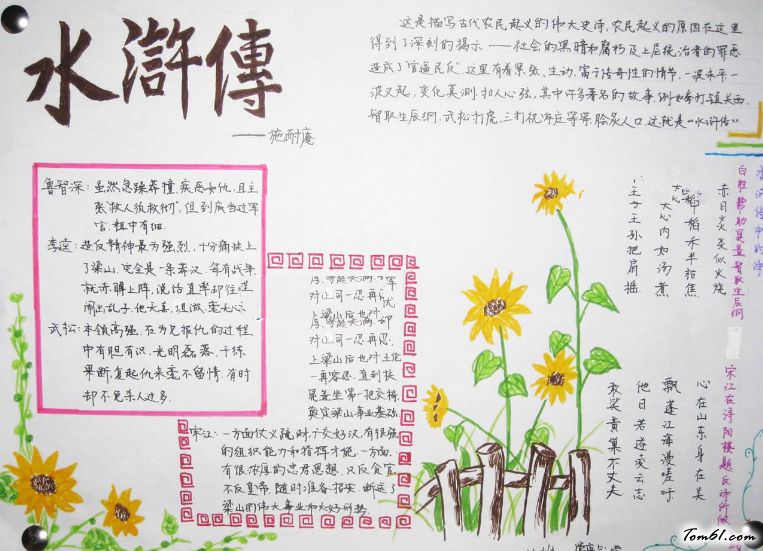 水滸傳
——施耐庵
这是描写古代农民起义的伟大史诗,农民起义的原因在这里
得到了深刻的揭示——社会的黑暗和腐朽及上层统治者的罪恶
造成了“官逼民反”.这里有着紧张,生动,富于传奇性的情节,一波未平一
波又起,变化莫测,扣人心弦,其中许多著名的故事,例如拳打镇关西,
智取生辰纲,武松打虎,三打祝家庄等等脍炙人口,这就是“水浒传”
鲁智深:虽然急躁莽撞,疾恶如仇,且主
张“救人须救彻”,但到底当过军
官,粗中有细.
李逵:造反精神最为强烈,十分痛快上
了梁山,完全是一条莽汉,每有战争,
就赤膊上阵,说话直率却往往
闹出乱子,他大喜
武松:本领高强,在为兄报仇的过程
中有胆有识,光明磊落,干练
果断,复起仇来毫不留情,有时
却不免杀人过多.
对江司一忍再
上梁山后也对
对江司一忍再忍,
上梁山后也对王伦
一再容忍,直到扶
晁盖坐第一把交椅,
奠定梁山事业基础.
宋江:一方面仗义疏财,广交好汉,有很强
的组织能力和指挥才能,一方面,
有很浓厚的忠君思想,只反贪官,
不反皇帝,随时准备招安,断送了
梁山的伟大事业和大好形势.
水浒传中的诗
白胜帮助晁盖智取生辰纲
赤日炎炎似火烧
野田禾稻半枯焦
农夫心内如汤煮
公子王孙把扇摇
宋江在浔阳楼题反诗所做
心在山东身在吴
飘蓬江海漫嗟吁
他日若遂凌云志
敢笑黄巢不丈夫
Tom61.com